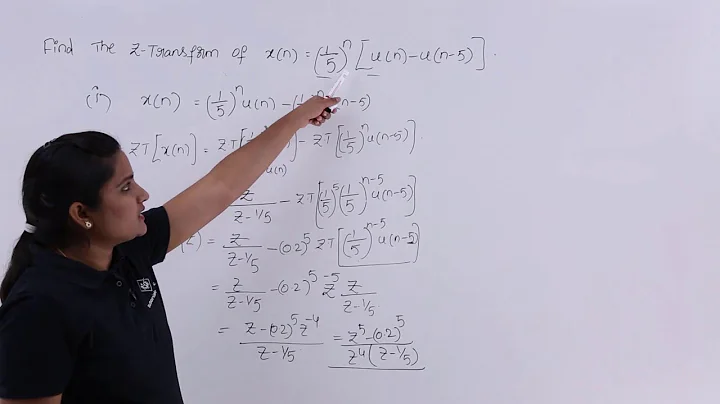 Find The Z-Transform of x(n) = (1/5)^n [u(n)-u(n-5)].
(i) x(n) = (1/5)^n u(n) - (1 n n-5)
ZT[x(n)] = ZT[(1 n)] - ZT[(1/5)^n u(n-5)].
u(n)
z/(z-1/5) - ZT[(1/5)^5 (1/5)^{n-5} u(n-5)]
(z) = z/(z-1/5) - (0.2)^5 ZT[(1/5)^{n-5} u(n-5)]
= z/(z-1/5) - (0.2)^5 z^{-5} z/(z-1/5)
= (z-(0.2)^5 z^{-4})/(z-1/5) = (z^5-(0.2)^5)/(z^4(z-1/5))